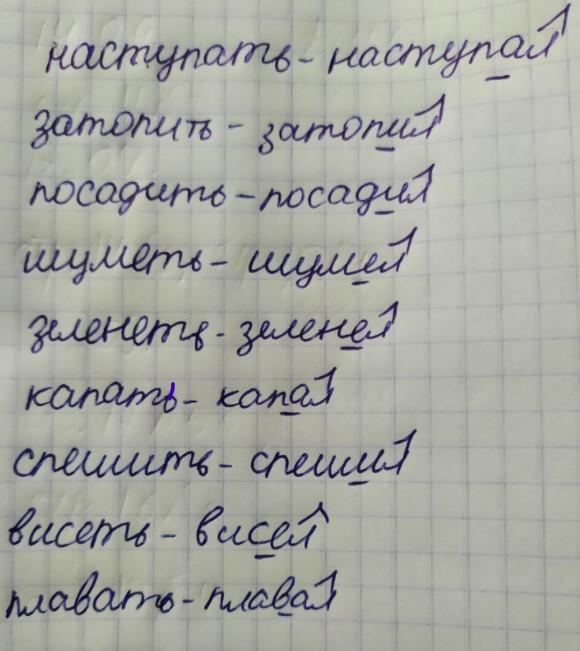 наступать - наступал
затопить - затопил
посадить - посадил
шуметь - шумел
зеленеть - зеленел
капать - капал
спешить - спешил
висеть - висел
плавать - плавал